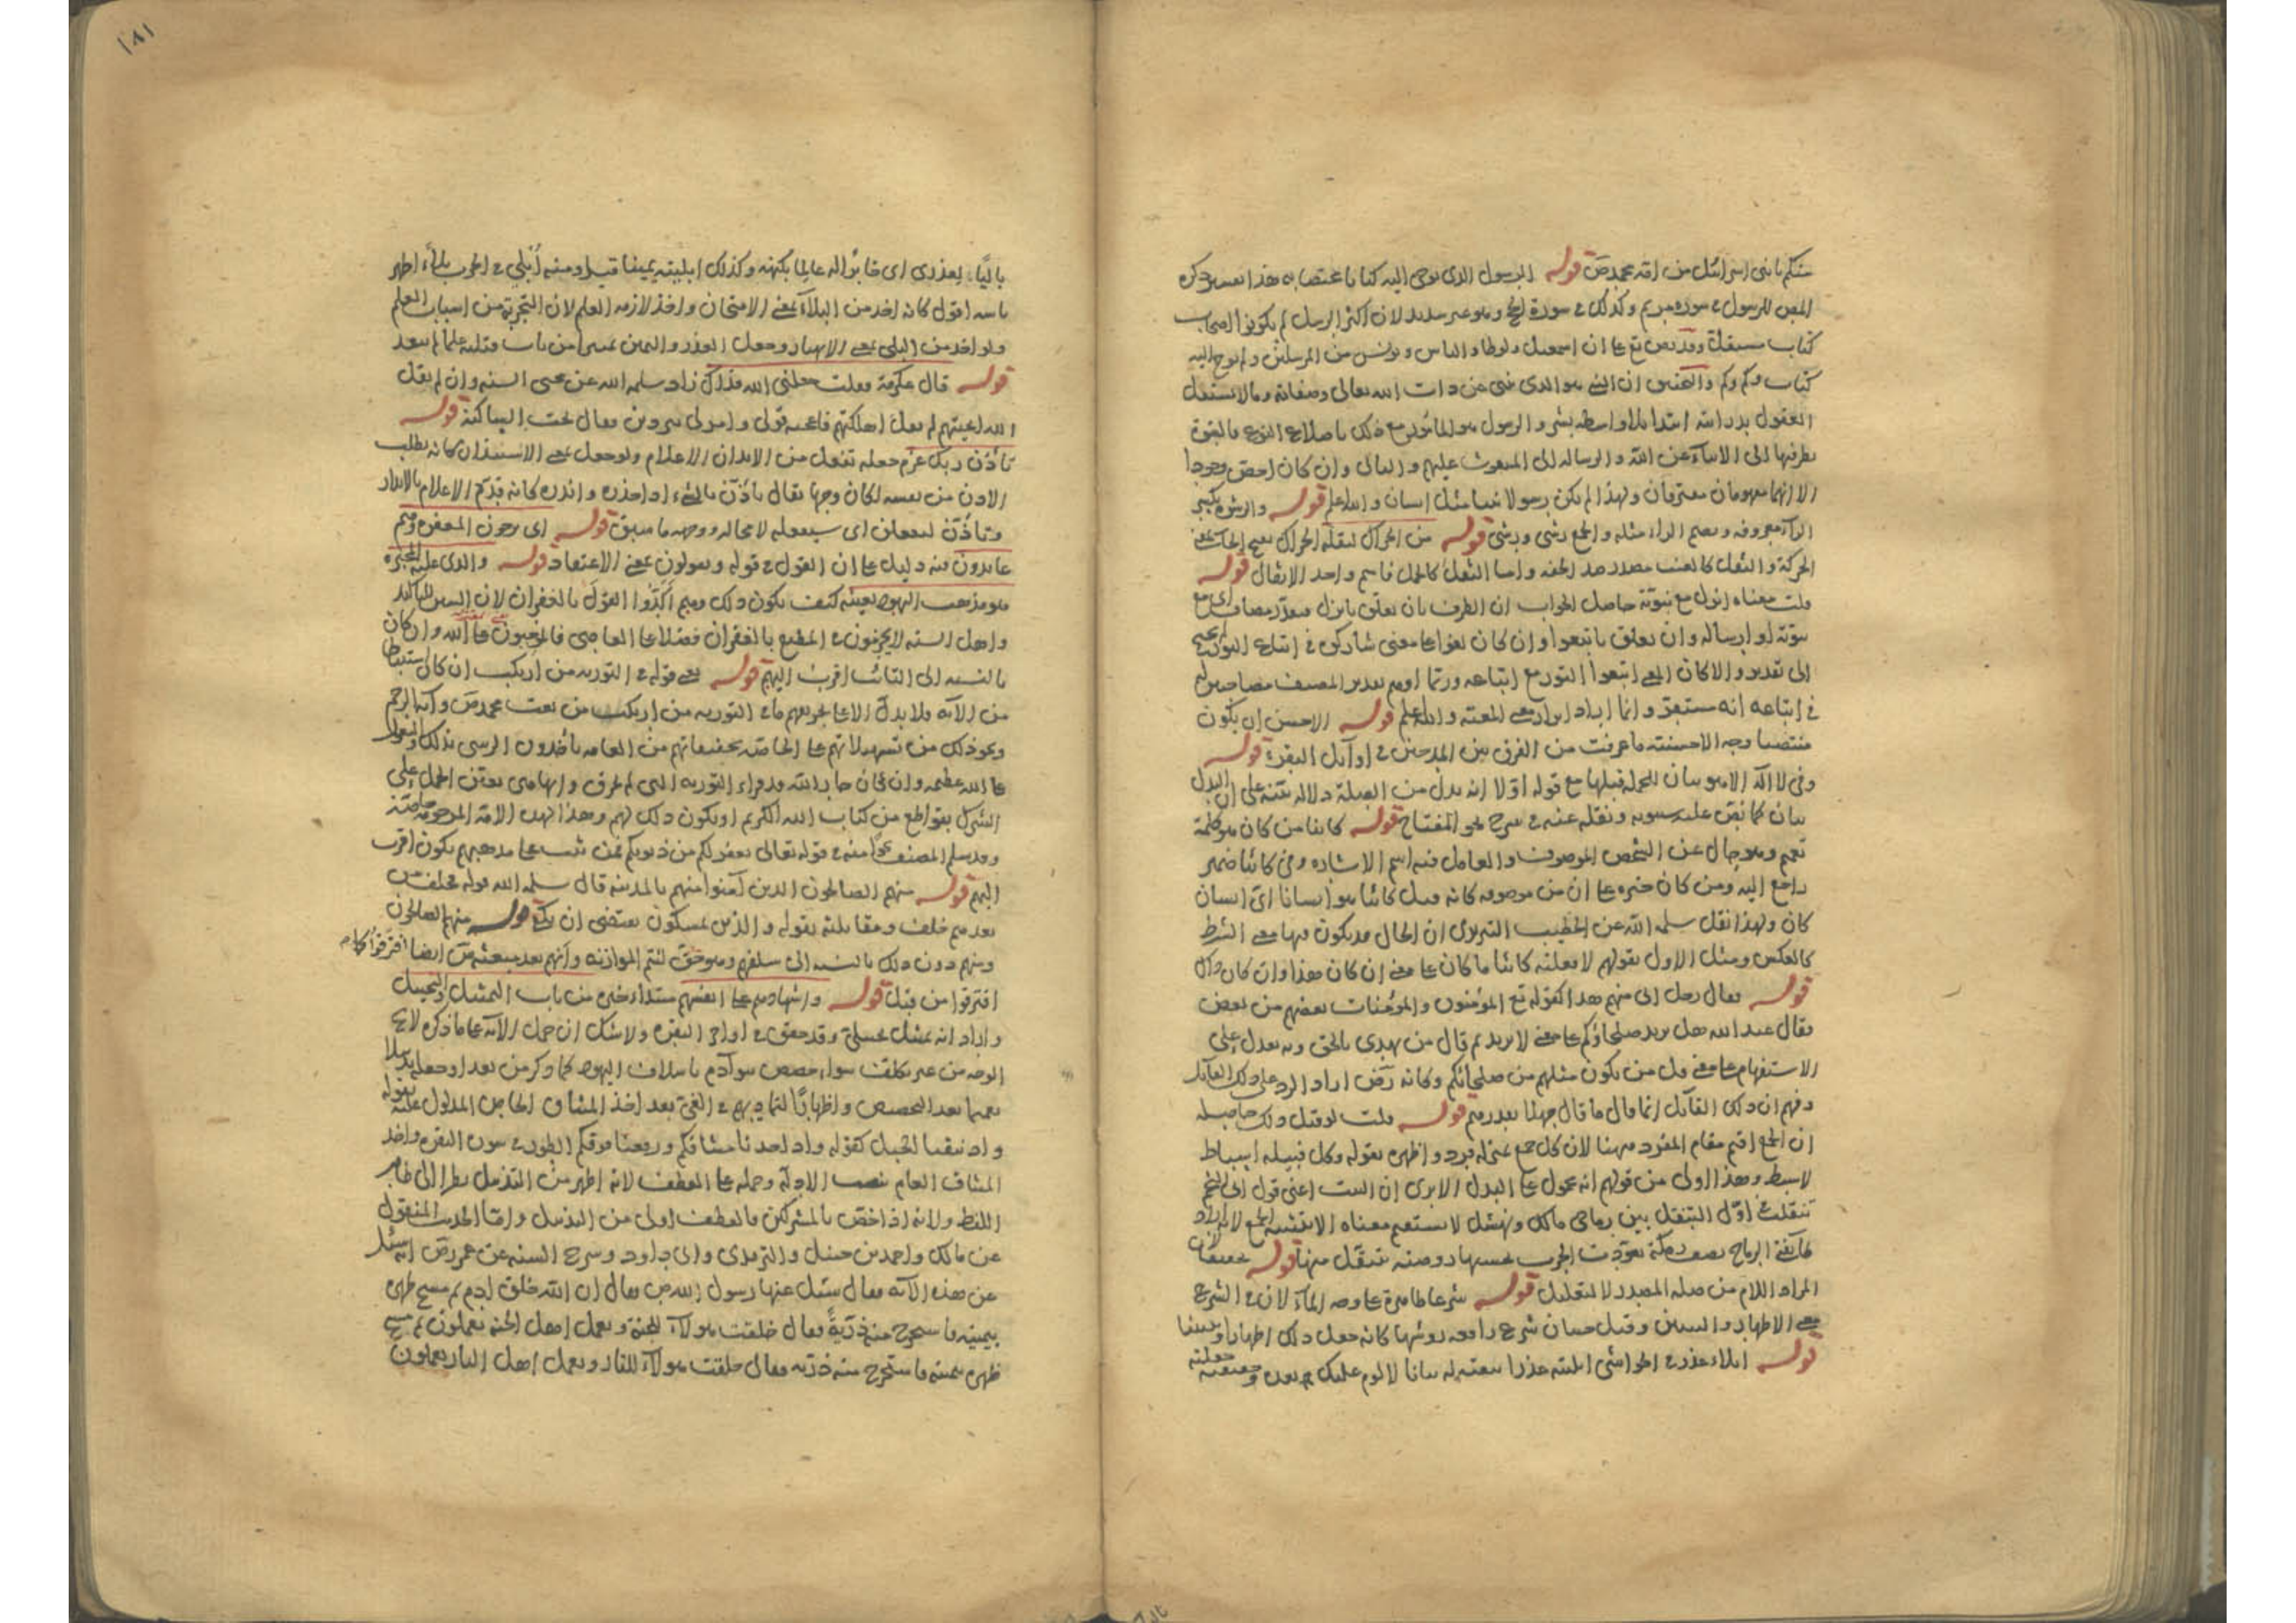 منكم يا بنى اسرائيل من امة محمد ص قوله الرسول الذى نوحى اليه كتابا مختصا به هذا تفسير ذكره
كتاب مستقل وقد نص تع على ان اسمعيل ولوطا والياس ويونس من المرسلين ولم يوح اليه
كتاب وكم وكم والتحقيق ان النبى هو الذى ينبى عن ذات الله تعالى وصفاته وما لا تستقل
العقول بدرايته ابتداء بلا واسطة بشر والرسول هو المأمور مع ذلك باصلاح النوع فالنبوة
نظر فيها الى الانباء عن الله والرسالة الى المبعوث عليهم والثانى وان كان اخص وجودا
الا انهما مفهومان مفترقان ولهذا لم يكن رسولا نبيا مثل انسان والله اعلم قوله والرشوة بكسر
الراء معروفة وبضم الراء مثله والجمع رشى ورشى قوله من الحراك لثقله الحراك بفتح الحاء
الحركة والثقل كالعنب مصدر ضد الخفة واما الثقل كالحمل فاسم واحد الاثقال قوله
قلت معناه انزل مع نبوته حاصل الجواب ان الظرف ان تعلق بانزل فيقدر مضاف اى مع
نبوته او ارساله وان تعلق باتبعوا وان كان لغوا على معنى شاركوه فى اتباع النور
الى تقدير والا كان المعنى اتبعوا النور مع اتباعه
فى اتباعه انه مستقر وانما والله اعلم قوله الاحسن ان يكون
منتصبا وجه الاحسنية ما عرفت من الفرق بين المدحين فى اوائل البقرة قوله
وفى لا اله الا هو بيان للجملة قبلها مع قوله اولا انه بدل من الصلة دلالة بينة على ان البدل
بيان كما نص عليه سيبويه ونقله عنه فى شرح نحو المفتاح قوله كائنا من كان هو كلمة
تعميم وهو حال عن الشخص الموصوف والعامل فيه اسم الاشارة وفى كائنا ضمير
راجع اليه ومن كان خبره على ان من موصوفة كانه قيل كائنا هو انسانا اى انسان
كان ولهذا نقل سلمه الله عن الخطيب التبريزى ان الحال قد يكون فيها معنى الشرط
كالعكس ومثل الاول بقولهم لافعلنه كائنا ما كان على معنى ان كان هذا وان كان ذاك
قوله فقال رجل انى منهم هذا كقوله تع المؤمنون والمؤمنات بعضهم من بعض
فقال عبد الله هل يزيد صلحاؤكم على معنى لا يزيد ثم قال من يهدى بالحق وبه يعدل على
الاستفهام على معنى قل من يكون مثلهم من صلحائكم وكانه رض اراد الرد على ذلك القائل
وفهم ان ذلك القائل انما قال ما قال جهلا بقدرهم قوله قلت لو قيل ذلك حاصله
ان الجمع اقيم مقام المفرد ههنا لان كل جمع بمنزلة فرد واظهره بقوله وكل قبيلة اسباط
لا سبط وهذا اولى من قولهم انه محمول على البدل الا يرى ان البيت اعنى قول ابى النجم
تنقلت اول التنقل بين رماحى مالك ونهشل لا يستقيم معناه الا بتثنية الجمع لانه اراد
المراد اللام من صلة المصدر لا للتعليل قوله شرعا ظاهرة على وجه الماء لان فى الشرع
معنى الاظهار والتبيين وقيل حيتان شرع رافعة رؤسها كانه جعل ذلك اظهارا وتبيينا
قوله ابلاء عذر فى الحواشى ابليته عذرا بينته له بيانا لا لوم عليك بعده وحقيقته جعلته

١٨١
باليا لعذرى اى خابرا له عالما بكنهه وكذلك ابليته يمينا قيل ومنه ابلى فى الحرب بلاء اظهر
باسه اقول كانه اخذ من البلاء بمعنى الامتحان واخذ لازمه العلم لان التجربة من اسباب العلم
ولو اخذ من البلى بمعنى الاختبار وجعل العذر واليمين تمييزا من باب قتلته علما لم يبعد
قوله قال عكرمة فقلت جعلنى الله فداك زاد سلمه الله عن محيى السنه وان لم يقل
الله انجيتهم لم يقل اهلكتهم فاعجبه قولى وامر لى ببردين وقال نجت الساكتة قوله
تأذن ربك عزم جعله تفعل من الايذان الاعلام ولو جعل بمعنى الاستيذان كانه يطلب
الاذن من نفسه لكان وجها يقال تأذن بالشىء
وتأذن ليفعلن اى سيفعله لا محالة ووجهه ما سبق قوله اى يرجون المغفرة وهم
عائدون فيه دليل على ان القول فى قوله ويقولون بمعنى الاعتقاد قوله والذى عليه المجبرة
هو مذهب اليهود بعينه كيف يكون ذلك وهم اكدوا القول بالغفران لان السين للتاكيد
واهل السنه لا يجزمون فى المطيع بالغفران فضلا عن العاصى
بالنسبة الى التائب اقرب اليهم قوله يعنى قوله فى التورية من ارتكب ان كان استنباطا
من الآية فلا يدل الا على تحريفهم ما فى التورية من ارتكب من نعت محمد ص وآية الرجم
ونحو ذلك من تسهيلاتهم على الخاصة بتخفيفاتهم من العامة ياخذون الرشى بذلك
على الله عظيمة
الشرك بقواطع من كتاب الله الكريم او يكون ذلك لهم وهذا لهذه الامة المرحومة خاصة
وقد سلم المصنف نحوا منه فى قوله تعالى يغفر لكم من ذنوبكم فمن ثبت على مذهبهم يكون اقرب
اليهم قوله منهم الصالحون الذين آمنوا منهم بالمدينة قال سلمه الله قوله فخلف من
بعدهم خلف ومقابلته بقوله والذين يمسكون يقتضى ان يكون قوله منهم الصالحون
ومنهم دون ذلك بالنسبة الى سلفهم وهو حق لتتم الموازنة وانهم بعد مبعثه ص ايضا افترقوا كما
افترقوا من قبل قوله واشهادهم على انفسهم مبتداء خبره من باب التمثيل والتخييل
واراد انه تمثيل تخييلى وقد حقق فى اواخر البقرة ولا شك ان حمل الآية على ما ذكره لائح
الوجه من غير تكلف سواء خصص بنو آدم باسلاف اليهود كما ذكر من بعد او جعل تذييلا
تعميما بعد التخصيص واظهارا لتماديهم فى الغى بعد اخذ الميثاق الخاص المدلول عليه بقوله
واذ نتقنا الجبل كقوله واذ اخذنا ميثاقكم ورفعنا فوقكم الطور فى سورة البقرة واخذ
الميثاق العام بنصب الادلة وحمله على العطف لانه اظهر من التذييل نظرا الى ظاهر
اللفظ ولانه اذا خص بالمشركين فالعطف اولى من التذييل واما الحديث المنقول
عن مالك واحمد بن حنبل والترمذى وابى داود وشرح السنه عن عمر رض انه سئل
عن هذه الآية فقال سئل عنها رسول الله ص فقال ان الله خلق آدم ثم مسح ظهره
بيمينه فاستخرج منه ذرية فقال خلقت هؤلاء للجنة وبعمل اهل الجنة يعملون ثم مسح
ظهره بيمينه فاستخرج منه ذرية فقال خلقت هؤلاء للنار وبعمل اهل النار يعملون